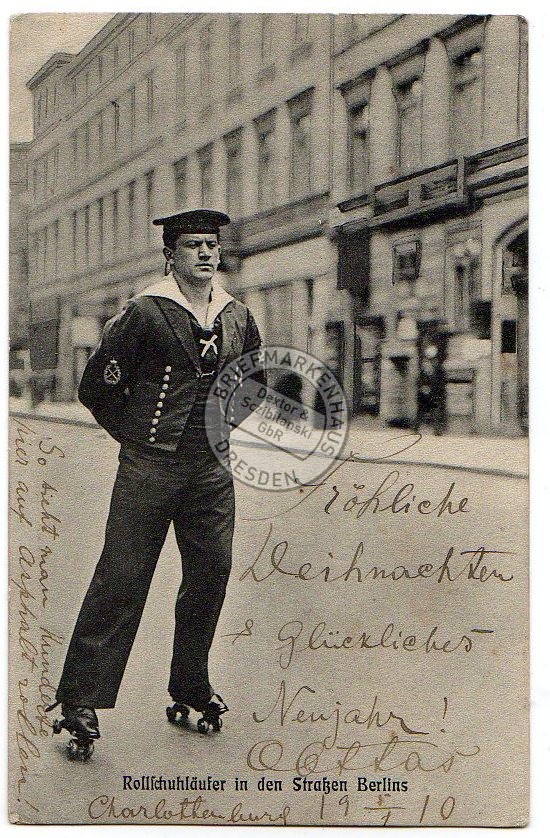 BRIEFMARKENHAUS
Dextor &
DRESDEN
GbR
Fröhliche
Weihnachten
& Glückliches
Neujahr!
So sieht man Hunderte
hier auf Asphalt rollen!
Rollschuhläufer in den Straßen Berlins
Charlottenburg 19 5/1 10